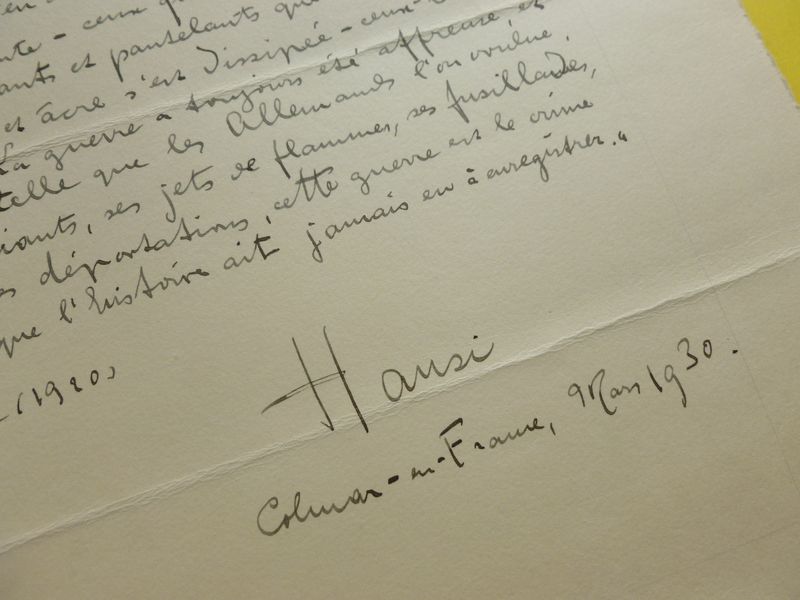 en
nte - ceux qu
ants et pantelants que
et âcre s'est dissipée - ceux-
La guerre a toujours été affreuse, et
telle que les Allemands l'on voulue,
iants, ses jets de flammes, ses fusillades,
es déportations, cette guerre est le crime
que l'histoire ait jamais eu à enregistrer."
(1920)
Hansi
Colmar-en-France, Mars 1930.